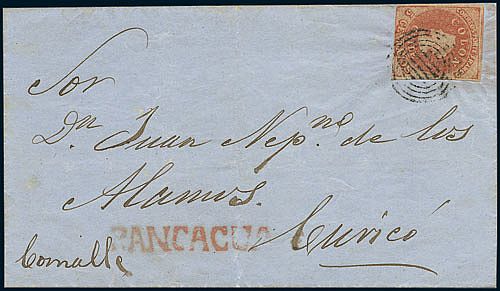 Sor
Dn Juan Nepno de los
Alamos.
RANCAGUA
Curicó
Comalle